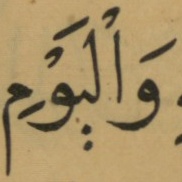 وَاْليَوْمِ